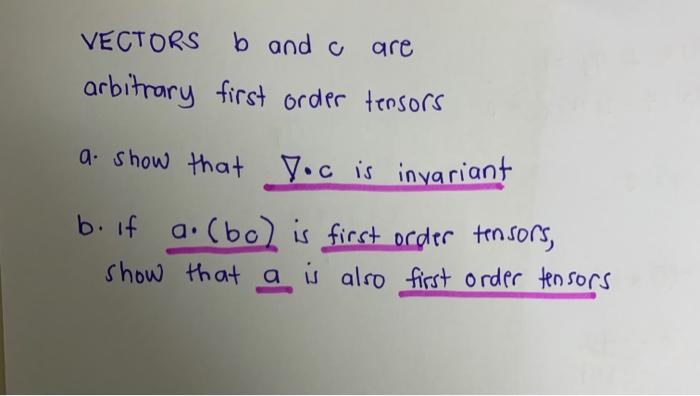 VECTORS b and c are
arbitrary first order tensors
a. show that ∇•c is invariant
b. if a.(bc) is first order tensors,
show that a is also first order tensors